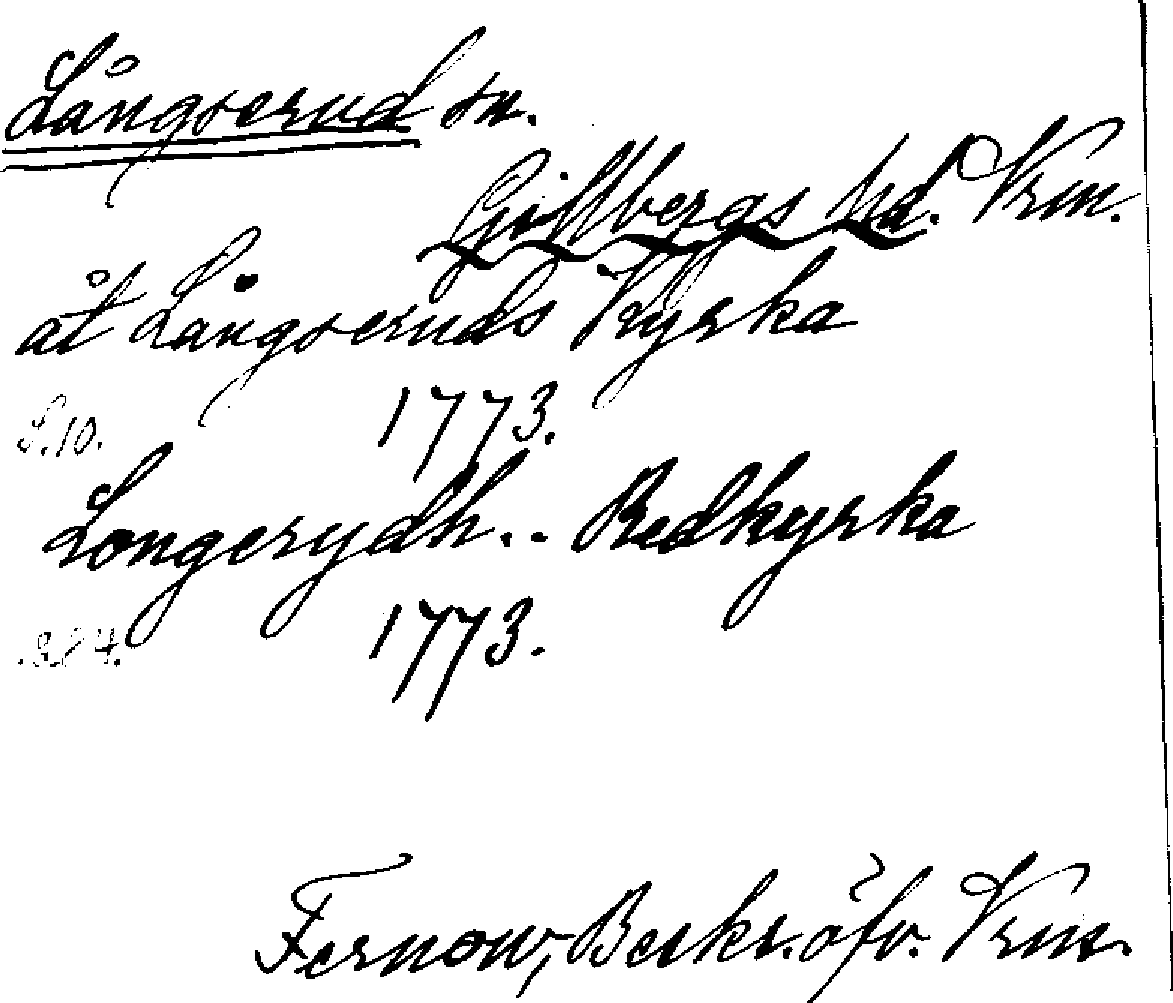 Långserud sn.
Gillbergs hd. Vrm.
åt Långseruds Kyrka
S.10. 1773.
Longerydh.. Redkyrka
1773.
Fernow, Beskr. öfv. Vrm.